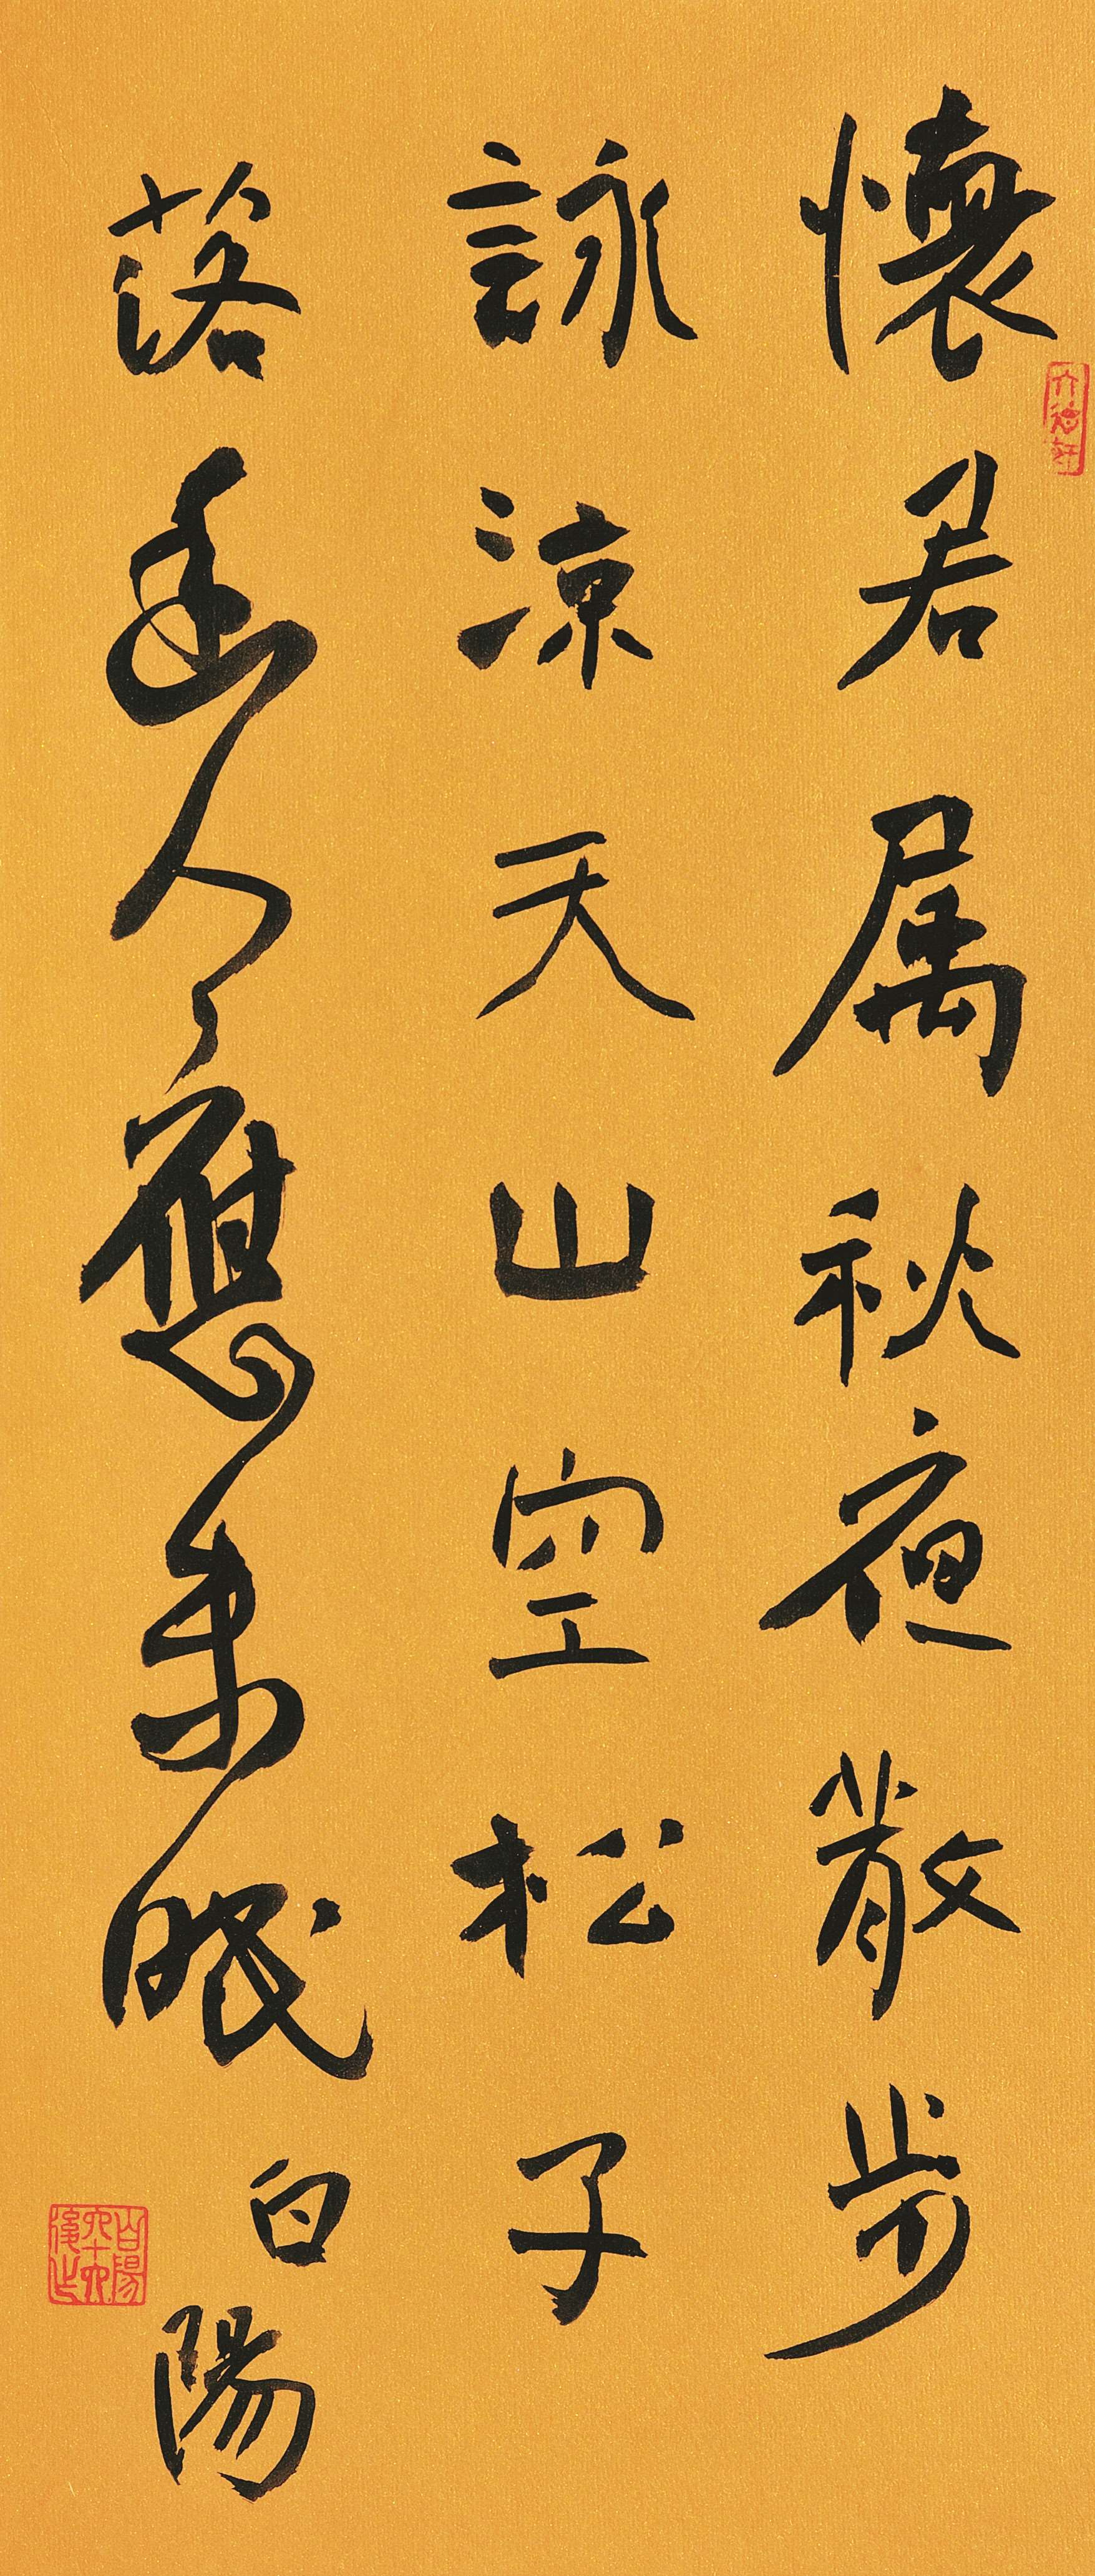 懷君属秋夜散步
詠涼天山空松子
落幽人應未眠
白陽